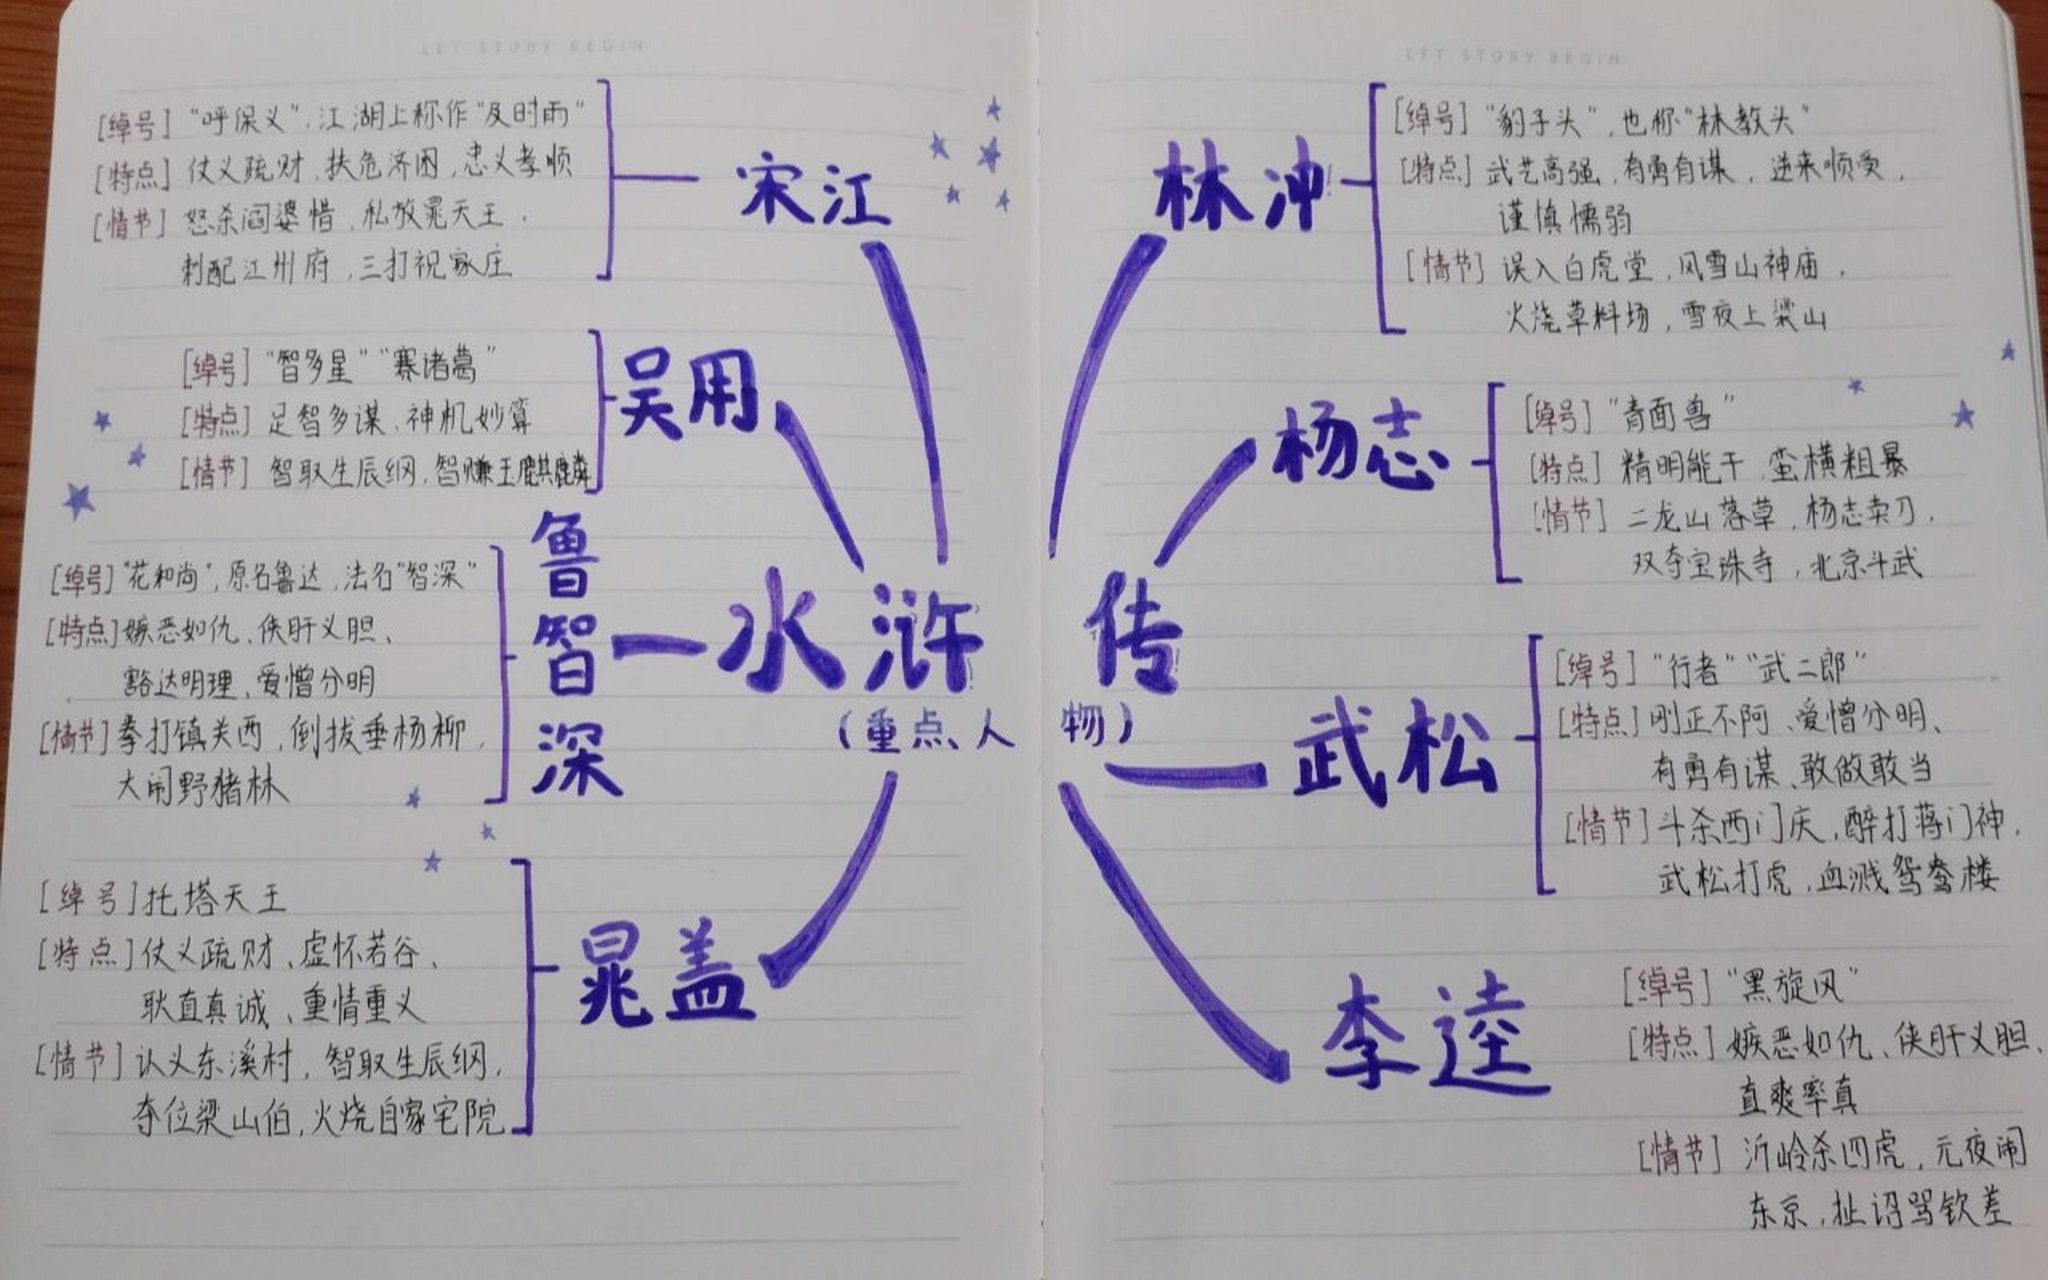 LET STORY BEGIN
[绰号] "呼保义",江湖上称作"及时雨"
[特点] 仗义疏财,扶危济困,忠义孝顺
[情节] 怒杀阎婆惜,私放晁天王,
刺配江州府,三打祝家庄
宋江
[绰号] "智多星" "赛诸葛"
[特点] 足智多谋、神机妙算
[情节] 智取生辰纲,智赚玉麒麟
吴用
[绰号] "花和尚",原名鲁达,法名"智深"
[特点] 嫉恶如仇、侠肝义胆、
豁达明理、爱憎分明
[情节] 拳打镇关西,倒拔垂杨柳,
大闹野猪林
鲁智深
[绰号] 托塔天王
[特点] 仗义疏财、虚怀若谷、
耿直真诚、重情重义
[情节] 认义东溪村,智取生辰纲,
夺位梁山伯,火烧自家宅院
晁盖
水浒传
(重点人物)
LET STORY BEGIN
林冲
[绰号] "豹子头",也称"林教头"
[特点] 武艺高强,有勇有谋,逆来顺受,
谨慎懦弱
[情节] 误入白虎堂,风雪山神庙,
火烧草料场,雪夜上梁山
杨志
[绰号] "青面兽"
[特点] 精明能干,蛮横粗暴
[情节] 二龙山落草,杨志卖刀,
双夺宝珠寺,北京斗武
武松
[绰号] "行者" "武二郎"
[特点] 刚正不阿、爱憎分明、
有勇有谋、敢做敢当
[情节] 斗杀西门庆,醉打蒋门神,
武松打虎,血溅鸳鸯楼
李逵
[绰号] "黑旋风"
[特点] 嫉恶如仇、侠肝义胆、
直爽率真
[情节] 沂岭杀四虎,元夜闹
东京,扯诏骂钦差